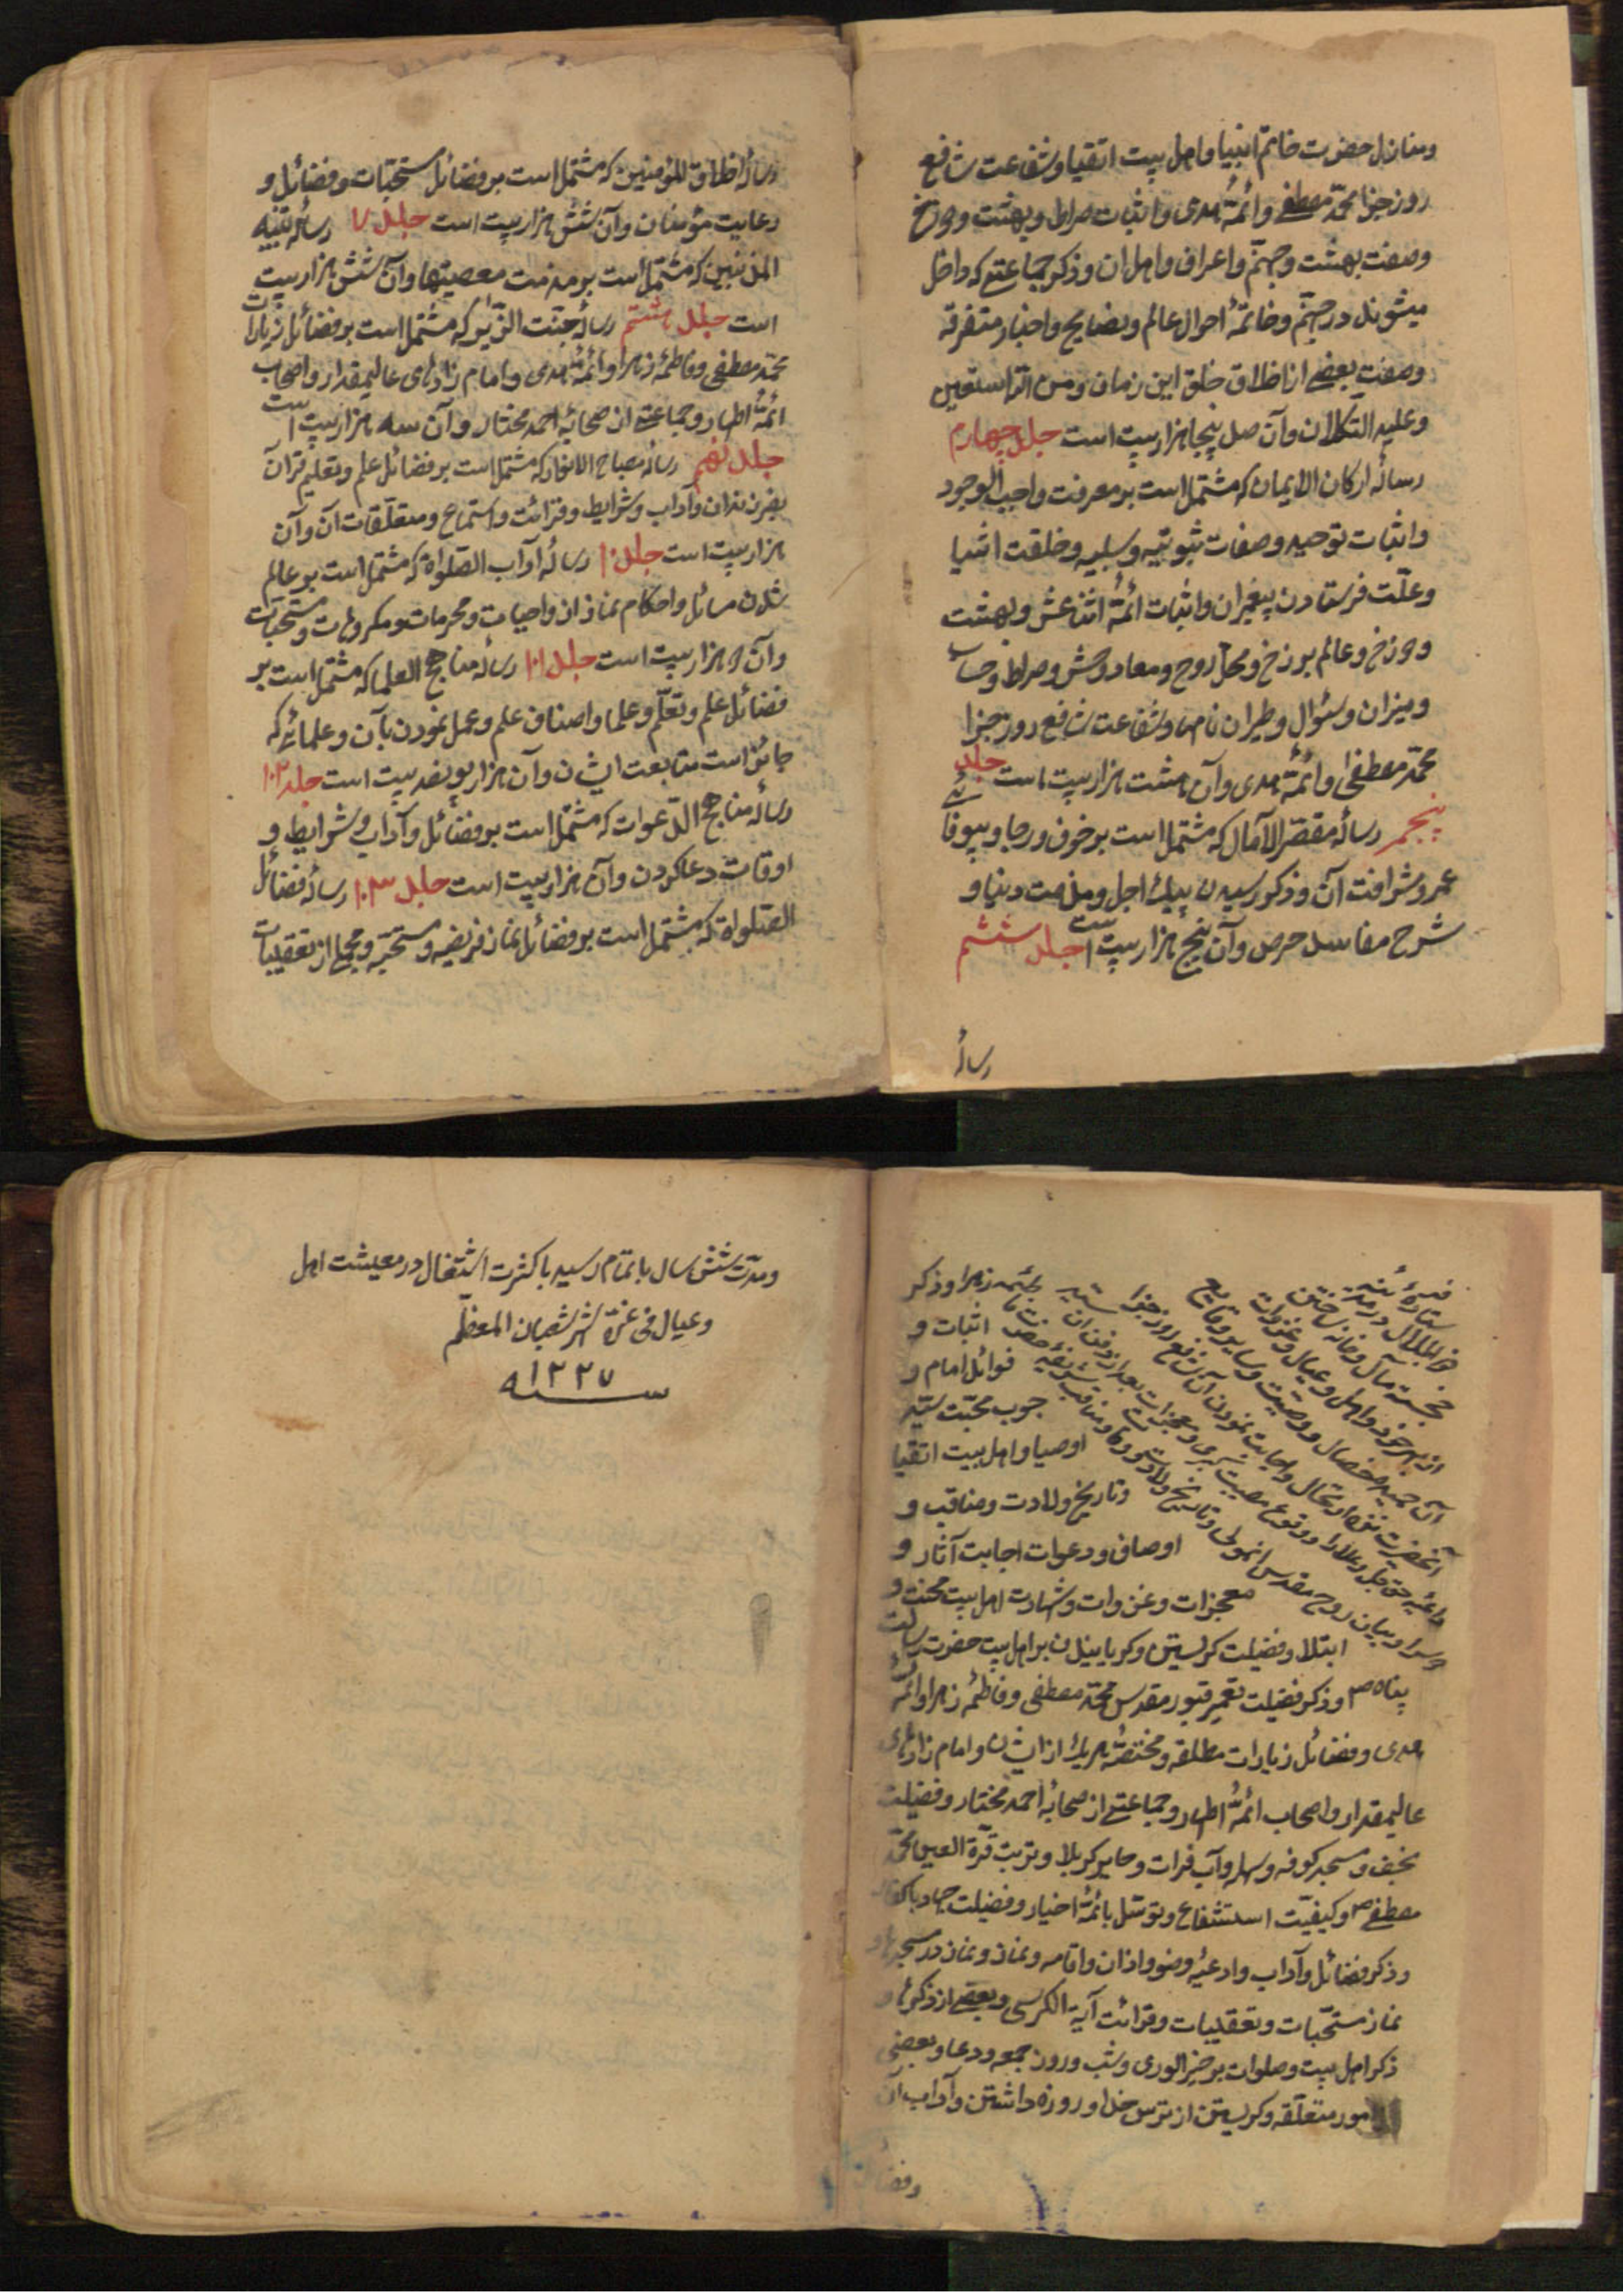 ومنازل حضرت خاتم انبیا واهل بیت اتقیا وشفاعت شافع
روز جزا محمّد مصطفی وائمّهٔ هدی واثبات صراط وبهشت ودوزخ
وصفت بهشت وجهنّم واعراف واهل ان وذکر جماعتی که داخل
میشوند در جهنّم وخاتمهٔ احوال عالم ونصایح واخبار متفرقه
وصفت بعضی از اخلاق خلق این زمان ومن الله استعین
وعلیه التکلان وآن صد پنجاه هزار بیت است جلد چهارم
رسالهٔ ارکان الایمان که مشتمل است بر معرفت واجب الوجود
واثبات توحید وصفات ثبوتیه وسلبیه وخلقت اشیا
وعلّت فرستادن پیغمبران واثبات ائمّهٔ اثنا عشر وبهشت
ودوزخ وعالم برزخ ومحلّ روح ومعاد وحشر وصراط وحساب
ومیزان وسئوال وطیران نامها وشفاعت شافع روز جزا
محمّد مصطفی وائمّهٔ هدی وآن هشت هزار بیت است جلد
پنجم رسالهٔ مقصّر الآمال که مشتمل است بر خوف ورجا وبیوفائی
عمر وشرافت آن وذکر رسیدن پیك اجل ومذمت دنیا و
شرح مفاسد حرص وآن پنج هزار بیت است جلد ششم
رسالهٔ
رسالهٔ اخلاق المؤمنین که مشتمل است بر فضائل مستحبّات وفضائل و
رعایت مؤمنان وآن شش هزار بیت است جلد ۷ رسالهٔ تنبیه
المذنبین که مشتمل است بر مذمت معصیتها وآن شش هزار بیت
است جلد هشتم رسالهٔ جنّت الزّائر که مشتمل است بر فضائل زیارات
محمّد مصطفی وفاطمهٔ زهرا وائمّهٔ هدی وامام زادهای عالیمقدار واصحاب
ائمّهٔ اطهار وجماعتی از صحابهٔ احمد مختار وآن سه هزار بیت است
جلد نهم رسالهٔ مصباح الانوار که مشتمل است بر فضائل علم وتعلیم قرآن
بفرزندان وآداب وشرایط وقرائت واستماع ومتعلّقات آن وآن
هزار بیت است جلد ۱۰ رسالهٔ آداب الصّلواة که مشتمل است بر عالم
شدن مسائل واحکام نماز از واجبات ومحرمات ومکروهات ومستحبّات
وآن هزار بیت است جلد ۱۰۱ رسالهٔ مناهج العلما که مشتمل است بر
فضائل علم وتعلّم وعلما واصناف علم وعمل نمودن بآن وعلمائی که
جائز است متابعت ایشان وآن هزار وپانصد بیت است جلد ۱۰۲
رسالهٔ مناهج الدّعوات که مشتمل است بر فضائل وآداب وشرایط و
اوقات دعا کردن وآن هزار بیت است جلد ۱۰۳ رسالهٔ فضائل
الصّلواة که مشتمل است بر فضائل نماز فریضه ومستحبّه وجمعی از تعقیبات
بئمه زهرا وذکر
اثبات و
فوائد امام و
جوب محبّت سیّد
اوصیا واهل بیت اتقیا
وتاریخ ولادت ومناقب و
اوصاف ودعوات اجابت آثار و
معجزات وغزوات وشهادت اهل بیت محنت و
ابتلا وفضیلت کریستن وکریانیدن بر اهل بیت حضرت رسالت
پناه ص وذکر فضیلت تعمیر قبور مقدس محمّد مصطفی وفاطمهٔ زهرا وائمّهٔ
هدی وفضائل زیارات مطلقه ومختصّهٔ هریك از ایشان وامام زادهای
عالیمقدار واصحاب ائمّهٔ اطهار وجماعتی از صحابهٔ احمد مختار وفضیلت
نجف ومسجد کوفه وسهله وآب فرات وحایر کربلا وتربت قرّة العین محمّد
مصطفی ص وکیفیّت استشفاع وتوسّل بائمّهٔ اخیار وفضیلت جهاد با کفار
وذکر فضائل وآداب وادعیهٔ وضو واذان واقامه ونماز ونماز در مسجدها و
نماز مستحبّات وتعقیبات وقرائت آیة الکرسی وبعضی از ذکرها و
ذکر اهل بیت وصلوات بر خیر الوری وشب وروز جمعه ودعا وبعضی
امور متعلّقه وکریستن از ترس خدا وروزه داشتن وآداب آن
وفضائل
ومدّت شش سال باتمام رسید با کثرت اشتغال در معیشت اهل
وعیال فی غرّة شهر شعبان المعظّم
سنه ۱۲۲۷